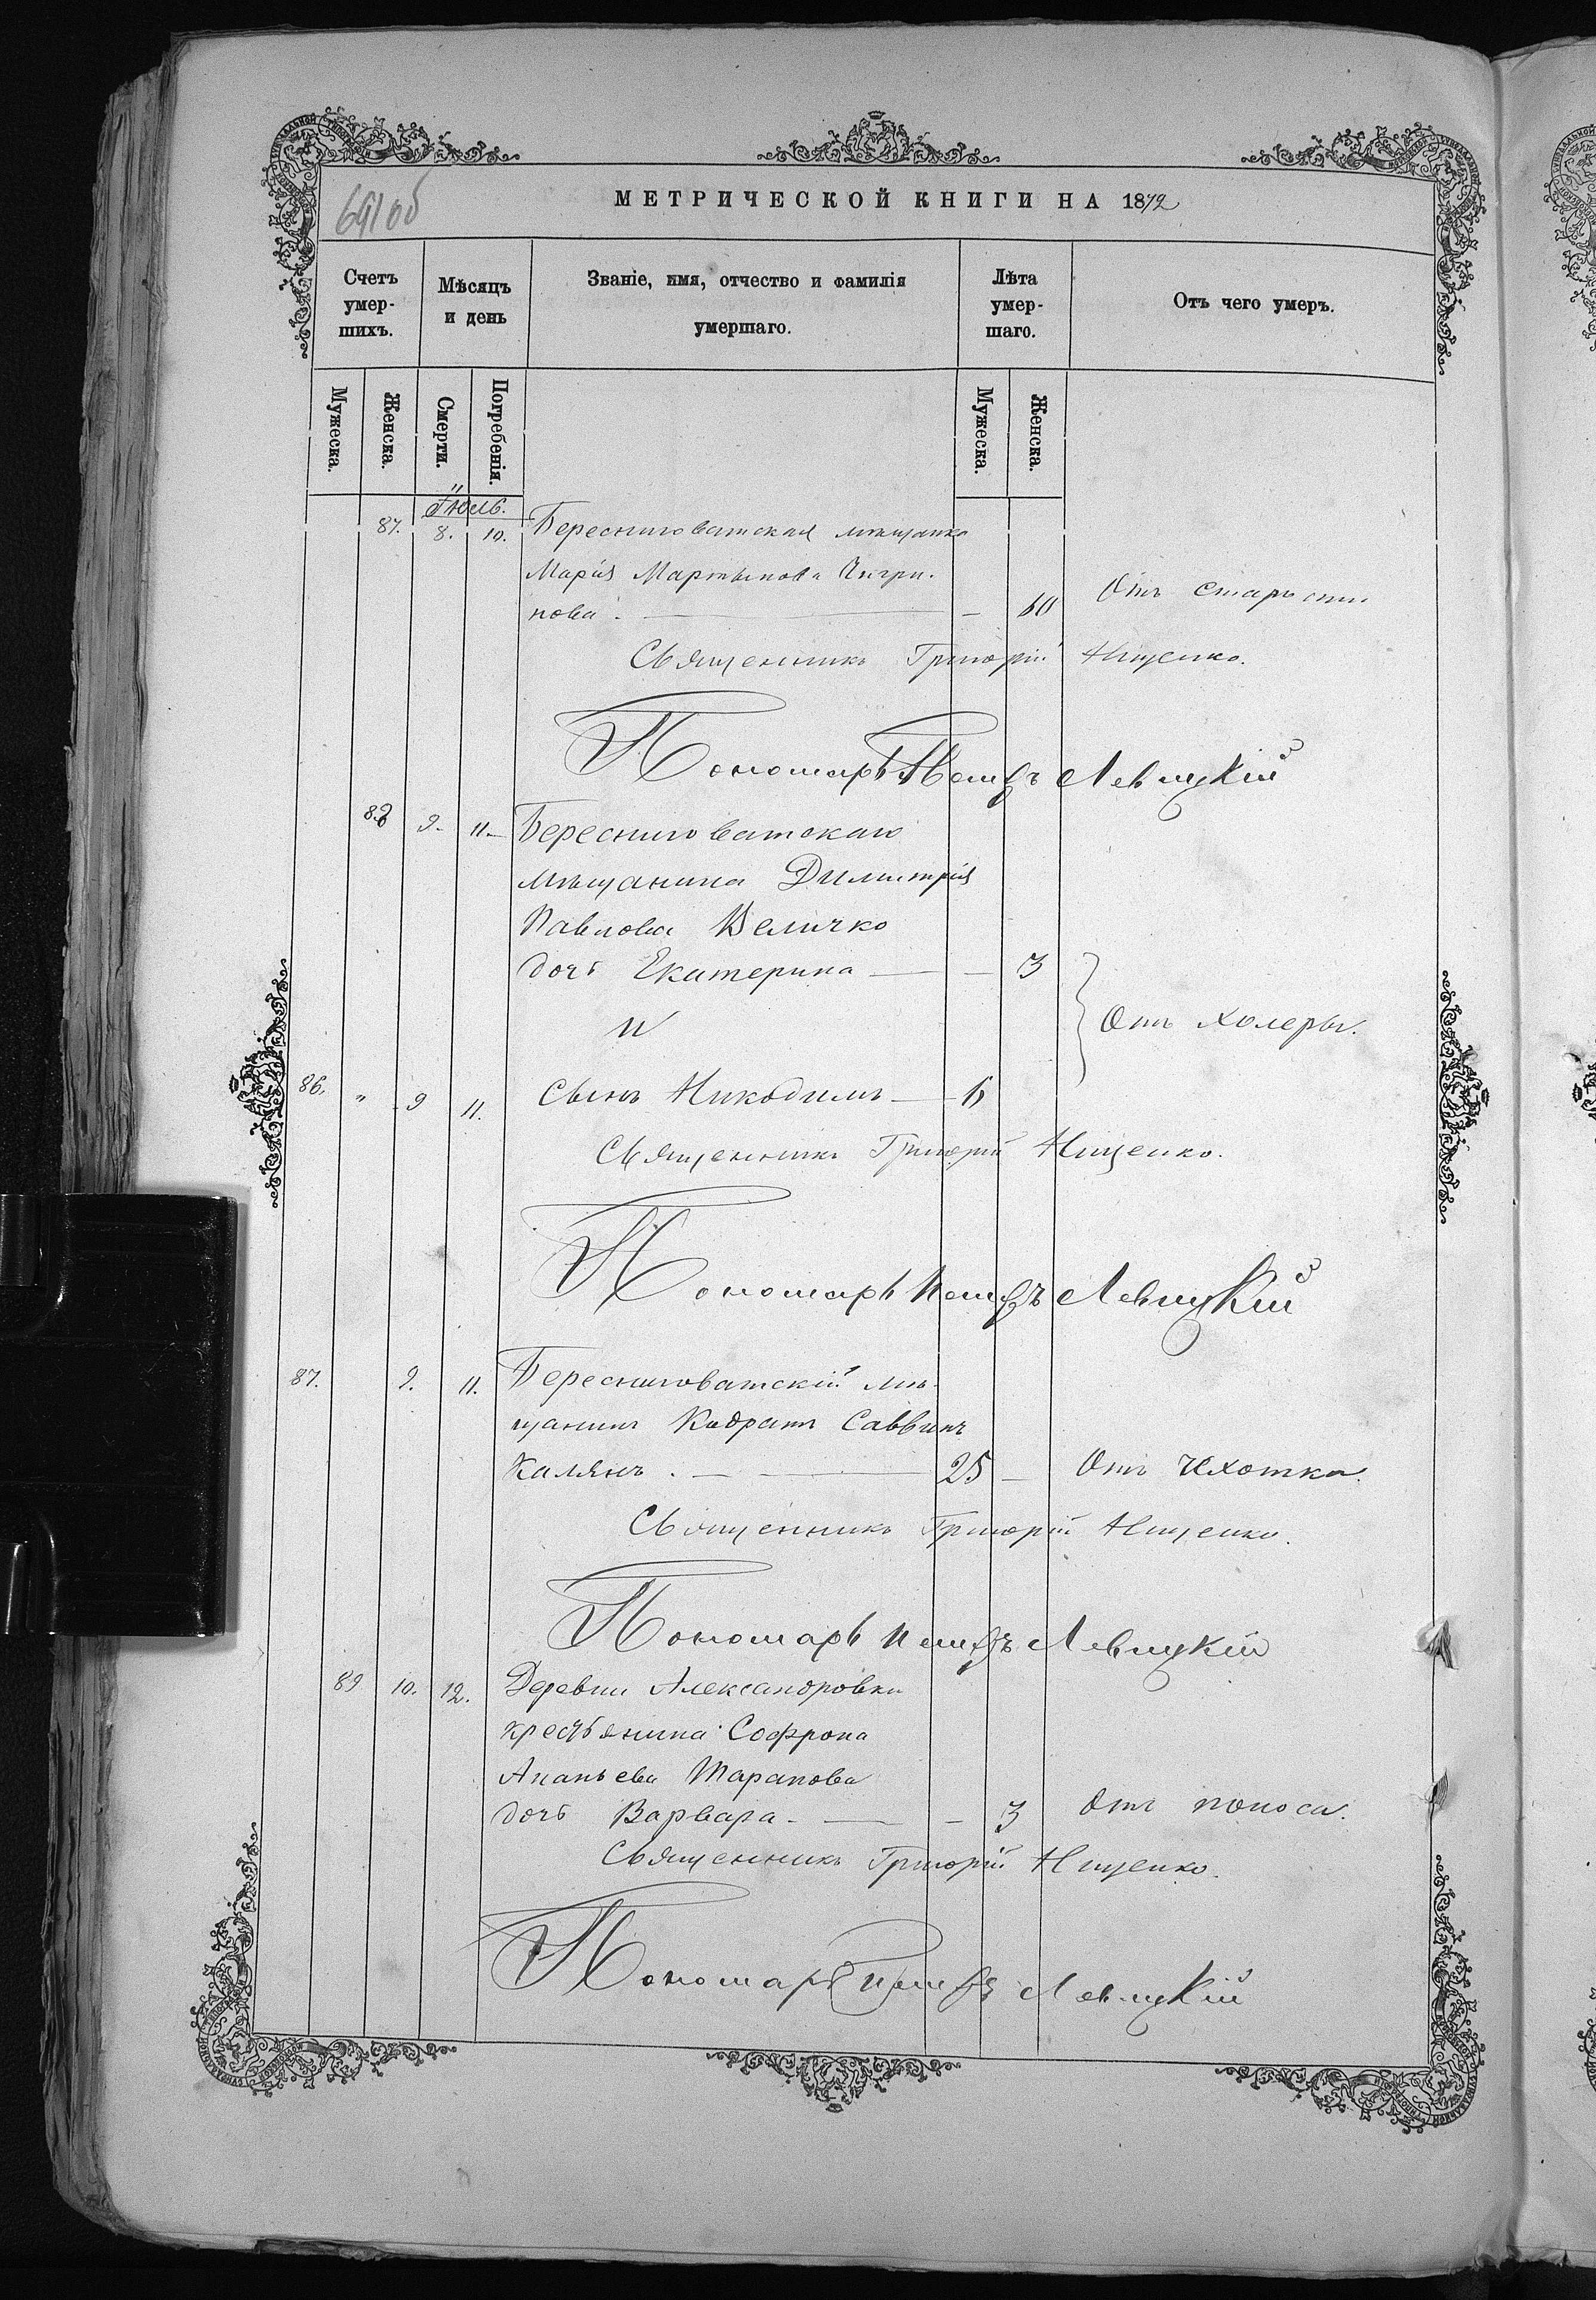 691об
МЕТРИЧЕСКОЙ КНИГИ НА 1872
Счетъ умер-шихъ.
Мѣсяцъ и день
Званіе, имя, отчество и фамилія умершаго.
Лѣта умер-шаго.
Отъ чего умеръ.
Мужеска. Женска. Смерти. Погребенія. Мужеска. Женска.
Іюль.
87. 8. 10. Бересниговатская мѣщанка
Марія Мартынова Чигри-
нова. — 60 Отъ старости
Священникъ Григорій Нищенко.
Пономарь Петръ Левицкій
88 9. 11. Бересниговатскаго
мѣщанина Димитрія
Павлова Величко
дочь Екатерина — 3
и
Отъ холеры.
86. " 9 11. Сынъ Никодимъ — 6
Священникъ Григорій Нищенко.
Пономарь Петръ Левицкій
87. 9. 11. Бересниговатскій мѣ-
щанинъ Кодратъ Саввинъ
Калянъ. — 25 — Отъ Чхотка.
Священникъ Григорій Нищенко.
Пономарь Петръ Левицкій
89 10. 12. Деревни Александровки
крестьянина Софрона
Ананьева Таранова
дочь Варвара. — 3 Отъ поноса.
Священникъ Григорій Нищенко.
Пономарь Петръ Левицкій